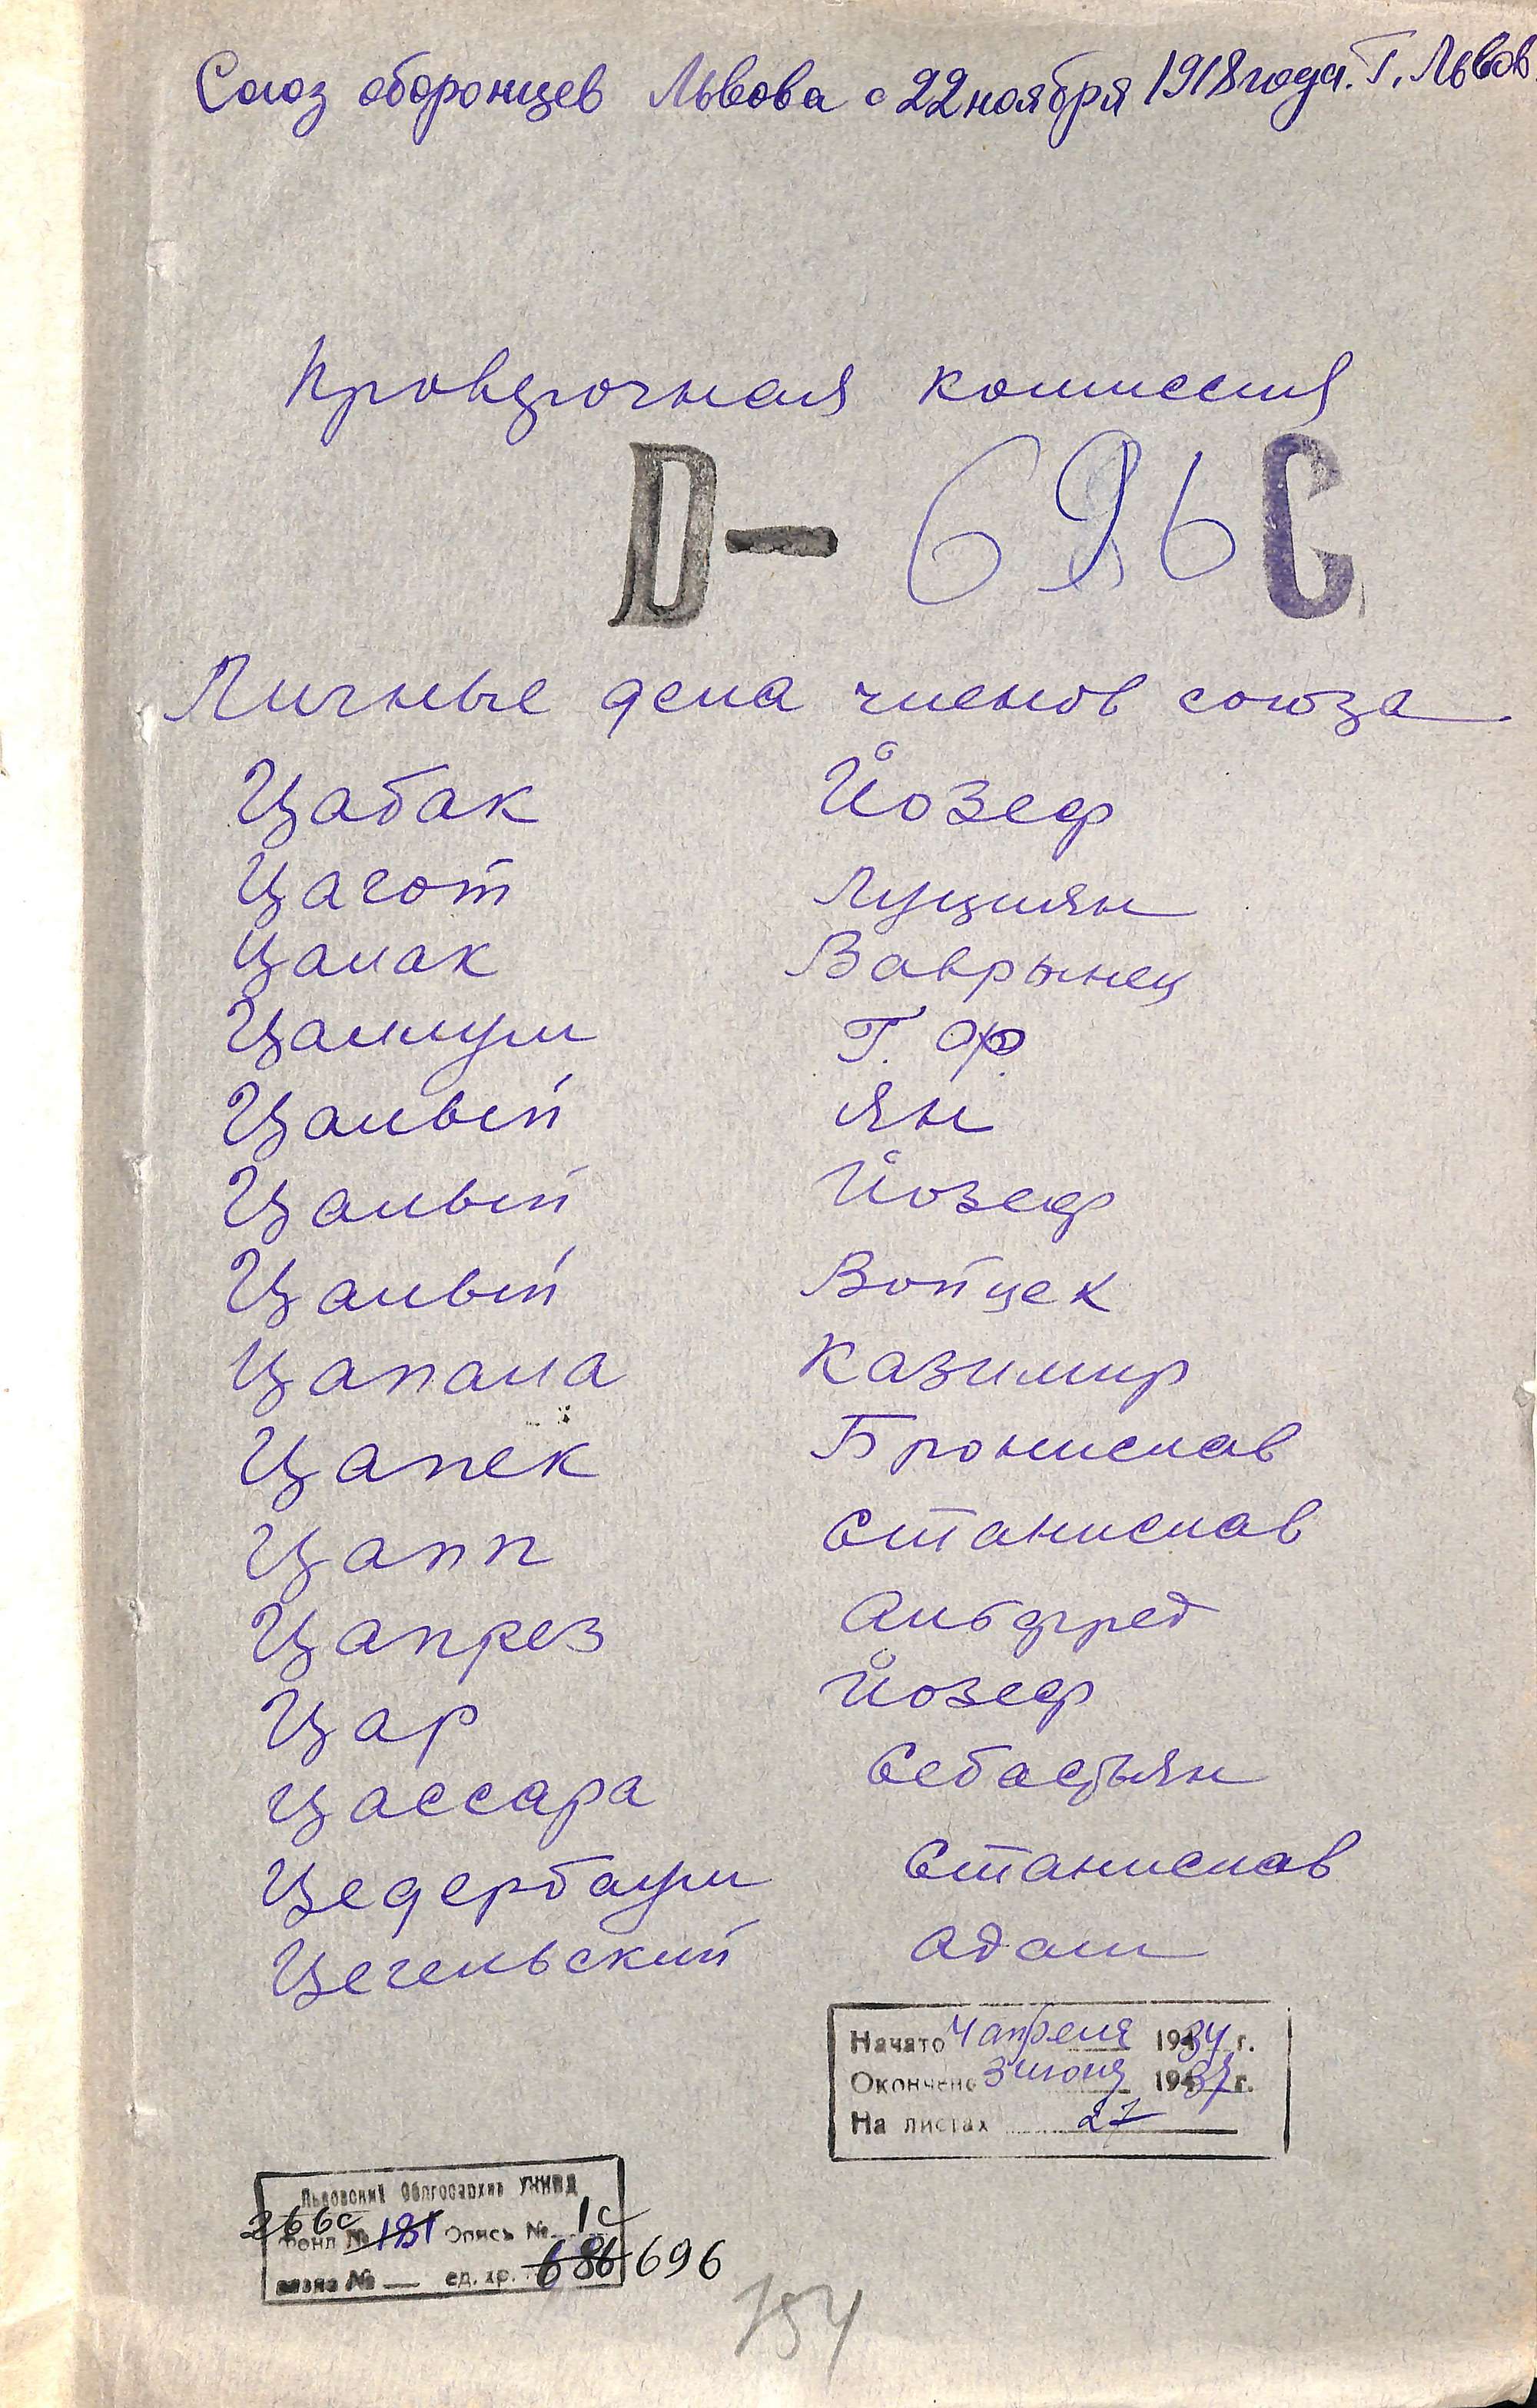 Союз оборонцев Львова с 22 ноября 1918 года. Г. Львов
Проверочная комиссия
D- 696 С
Личные дела членов союза
Цабак Йозеф
Цагот Луциян
Цалак Ваврынец
Цаллум Г. Ф.
Цалый Ян
Цалый Йозеф
Цалый Войцек
Цапала Казимир
Цапек Бронислав
Цапп Станислав
Цапрез Альфред
Цар Йозеф
Цассара Себастьян
Цедербаум Станислав
Цегельский Адам
Начато 4 апреля 1934 г.
Окончено 3 июня 1937 г.
На листах 27
Львовский Облгосархив УНКВД
266с Фонд № 181 Опись № 1с
связка № — ед. хр. 686 696
154